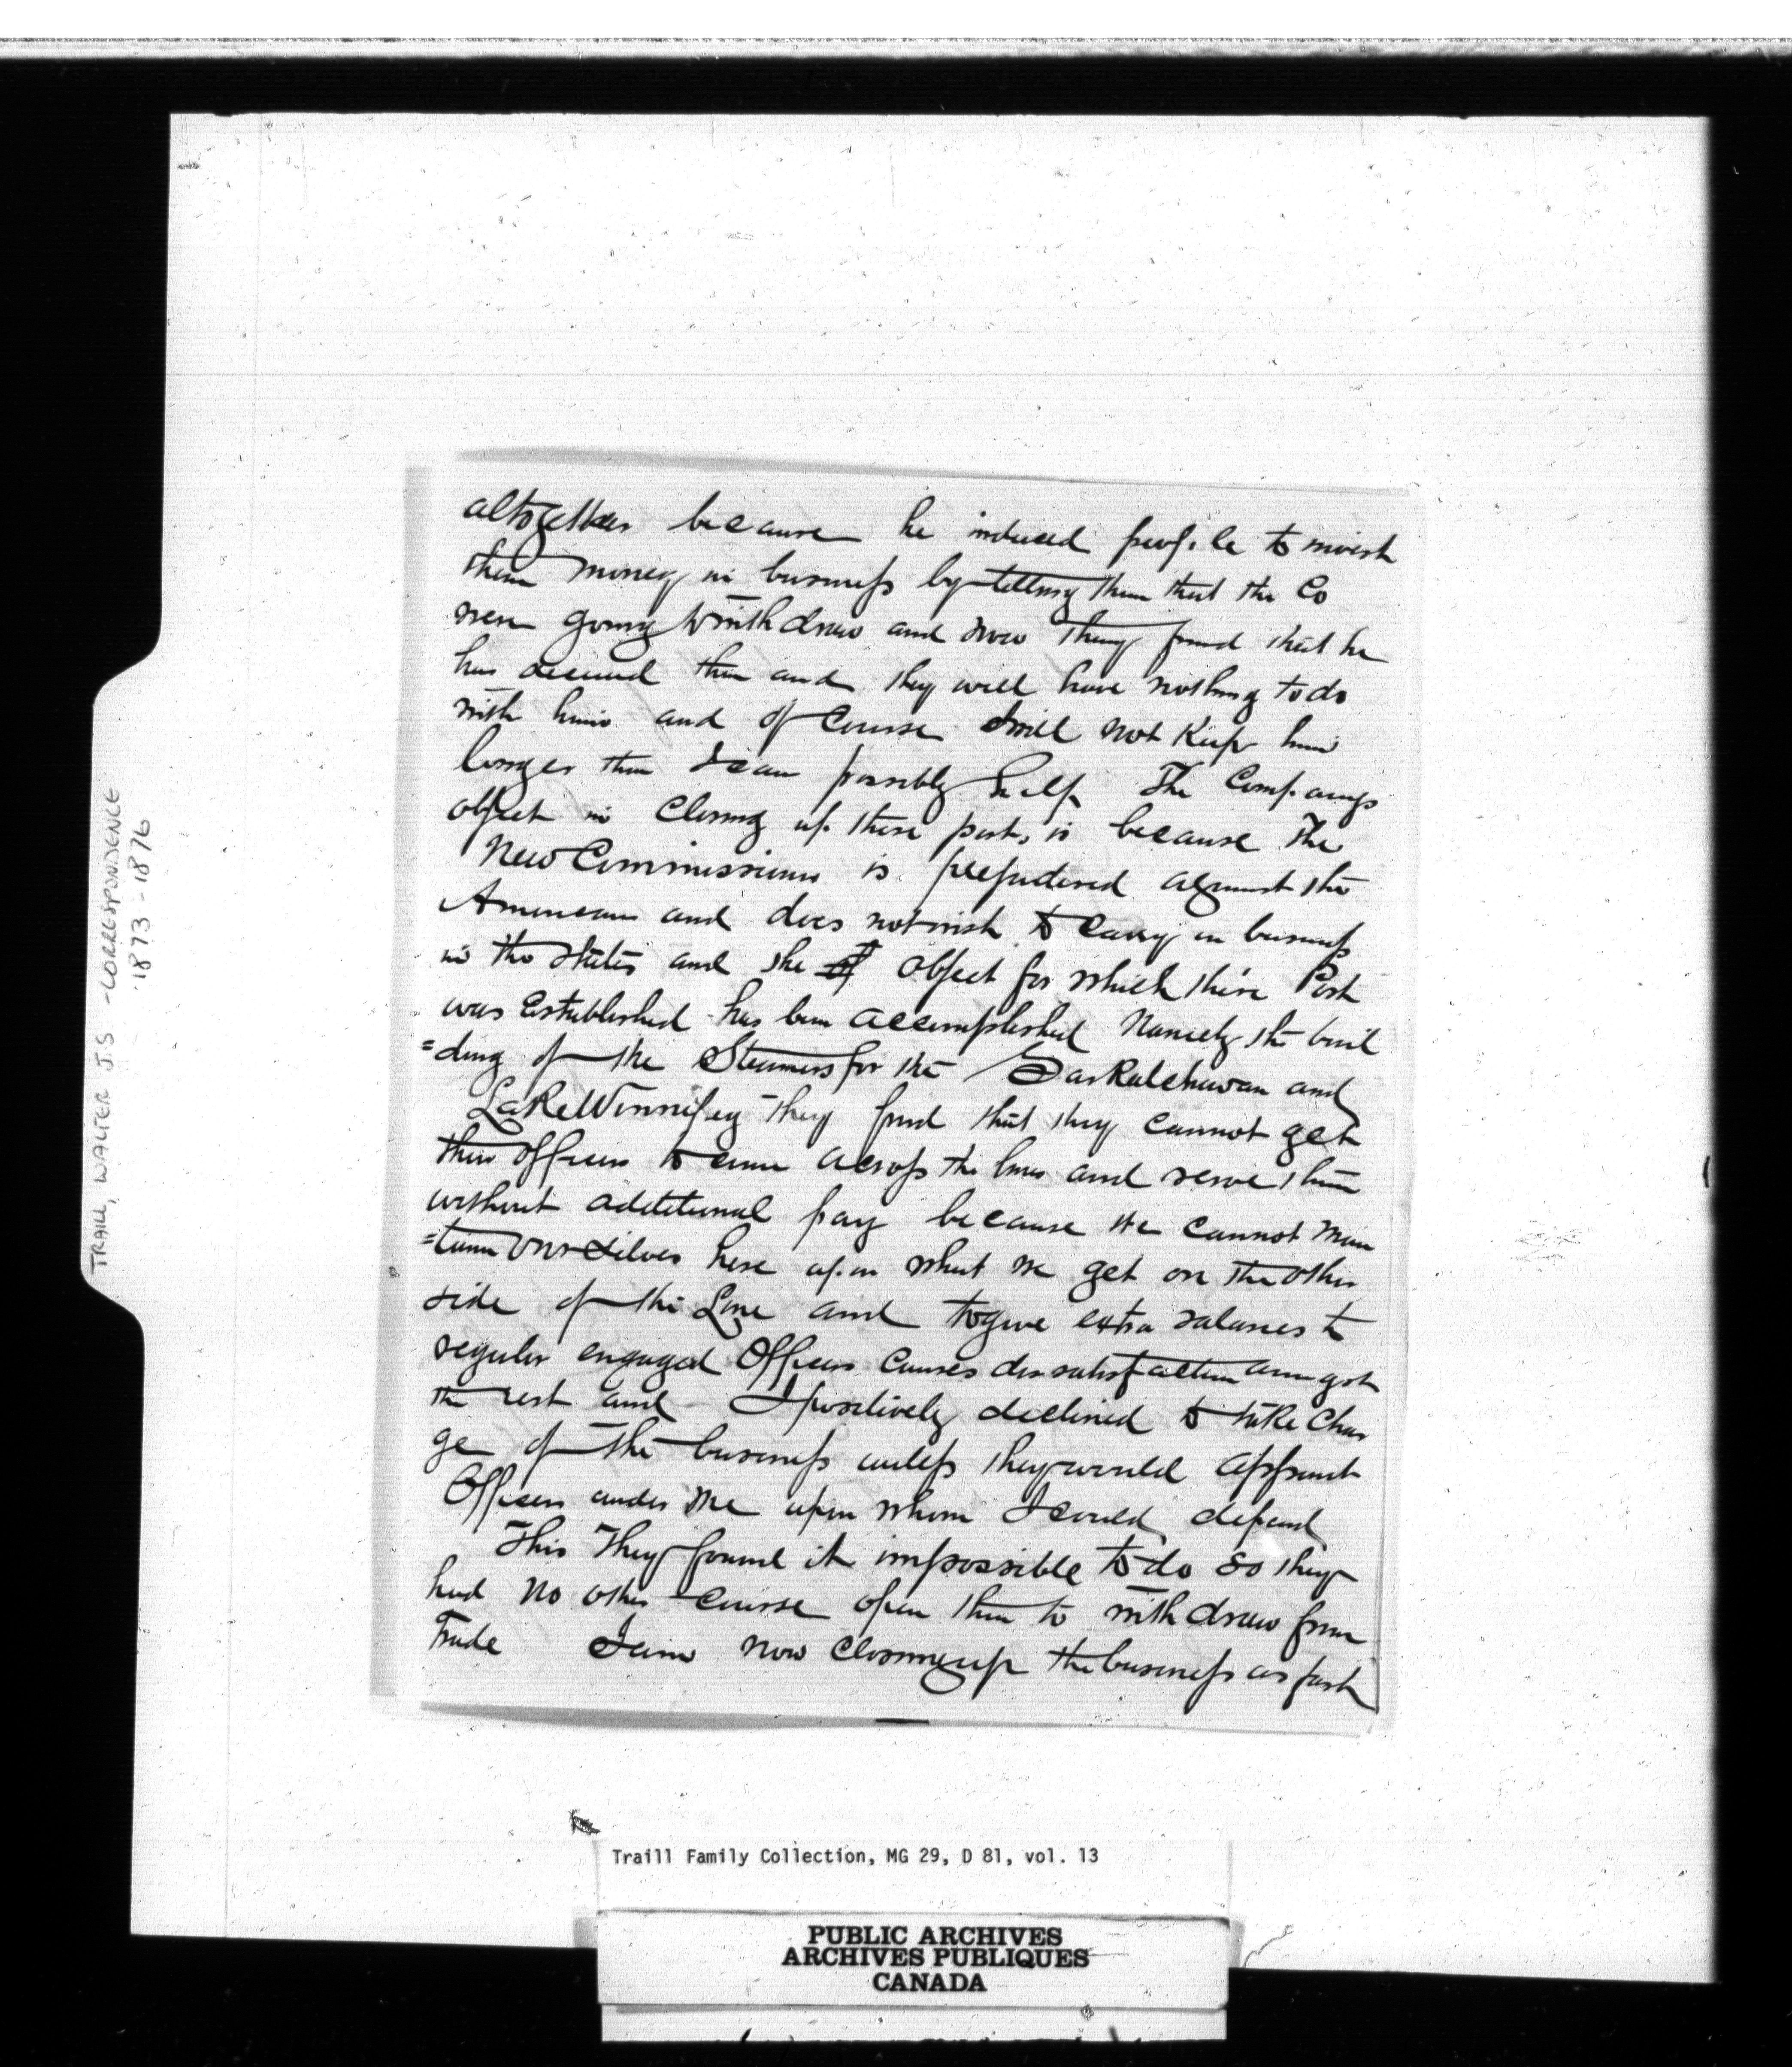 altogether because he induced people to invest
their money in business by telling them that the Co
were going to withdraw and now they find that he
has deceived them and they will have nothing to do
with him and of course I will not Keep him
longer than I can possibly help The Companys
object in Closing up these posts is because the
New Commissioner is prejudiced against the
Americans and does not wish to carry on business
in the States and the object for which these Post
was Established has been accomplished Namely the buil
=ding of the Steamers for the Saskatchewan and
Lake Winnipeg They find that they cannot get
their officers to come across the lines and serve them
without additional pay because we cannot main
=tain ourselves here upon what we get on the other
side of the Line and to give extra salaries to
regular engaged Officers Causes dissatisfaction amongst
the rest and I positively declined to take Char
ge of the business unless they would appoint
Officers under me upon whom I could depend
This They found it impossible to do so they
had no other course open them to withdraw from
Trade I am now closing up the business as fast
TRAILL, WALTER J.S. - CORRESPONDENCE
1873-1876
Traill Family Collection, MG 29, D 81, vol. 13
PUBLIC ARCHIVES
ARCHIVES PUBLIQUES
CANADA